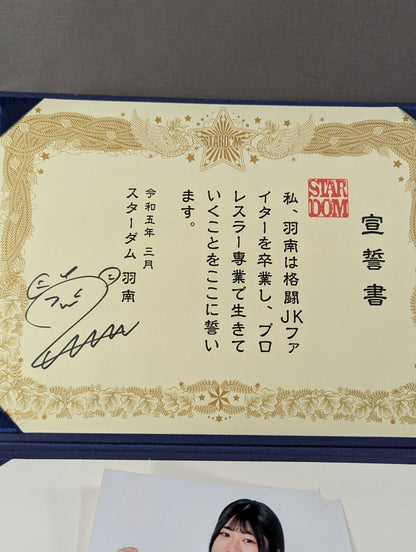 宣誓書
STAR
DOM
私、羽南は格闘JKファ
イターを卒業し、プロ
レスラー専業で生きて
いくことをここに誓い
ます。
令和五年 三月
スターダム 羽南